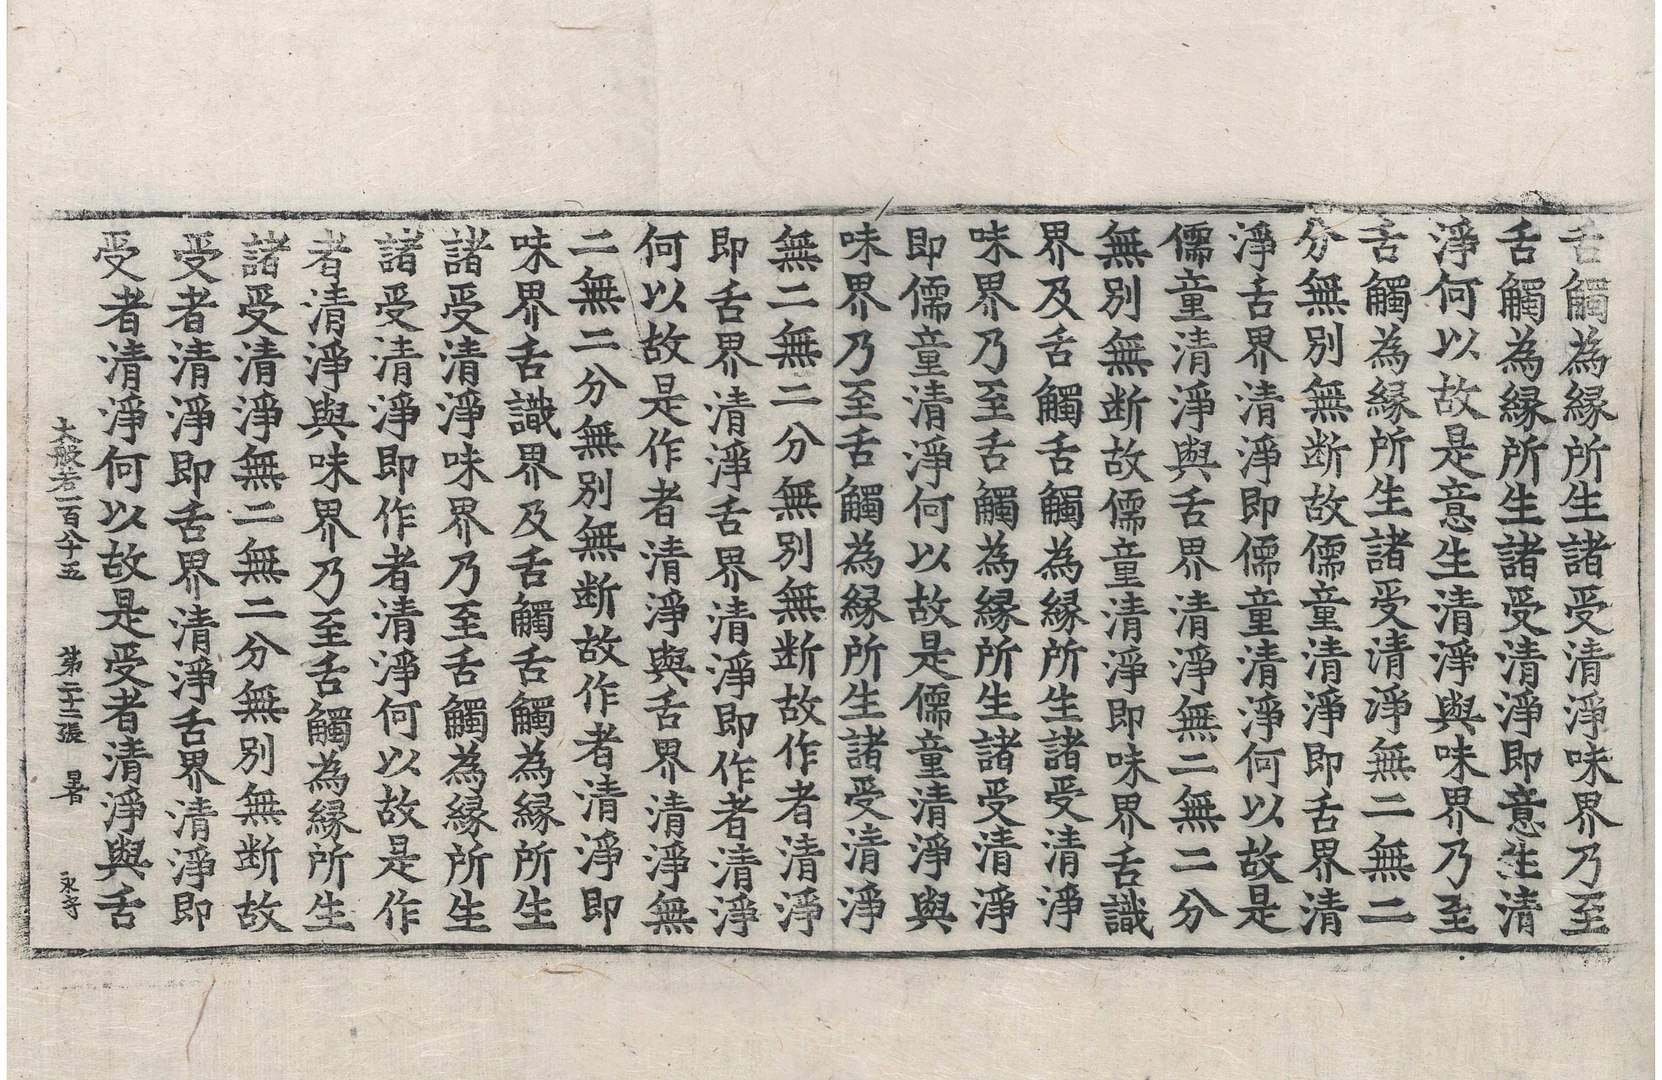 舌觸為縁所生諸受清淨味界乃至
舌觸為縁所生諸受清淨即意生清
淨何以故是意生清淨與味界乃至
舌觸為縁所生諸受清淨無二無二
分無別無断故儒童清淨即舌界清
淨舌界清淨即儒童清淨何以故是
儒童清淨與舌界清淨無二無二分
無別無断故儒童清淨即味界舌識
界及舌觸舌觸為縁所生諸受清淨
味界乃至舌觸為縁所生諸受清淨
即儒童清淨何以故是儒童清淨與
味界乃至舌觸為縁所生諸受清淨
無二無二分無別無断故作者清淨
即舌界清淨舌界清淨即作者清淨
何以故是作者清淨與舌界清淨無
二無二分無別無断故作者清淨即
味界舌識界及舌觸舌觸為縁所生
諸受清淨味界乃至舌觸為縁所生
諸受清淨即作者清淨何以故是作
者清淨與味界乃至舌觸為縁所生
諸受清淨無二無二分無別無断故
受者清淨即舌界清淨舌界清淨即
受者清淨何以故是受者清淨與舌
大般若一百八十五 第二十二張 暑 永守